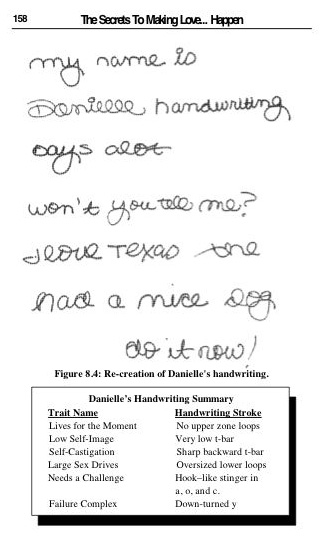 158 The Secrets To Making Love... Happen
my name is
Danielle handwriting
says alot
won't you tell me?
I love Texas the
had a nice dog
do it now!
Figure 8.4: Re-creation of Danielle's handwriting.
Danielle's Handwriting Summary
Trait Name Handwriting Stroke
Lives for the Moment No upper zone loops
Low Self-Image Very low t-bar
Self-Castigation Sharp backward t-bar
Large Sex Drives Oversized lower loops
Needs a Challenge Hook–like stinger in
a, o, and c.
Failure Complex Down-turned y